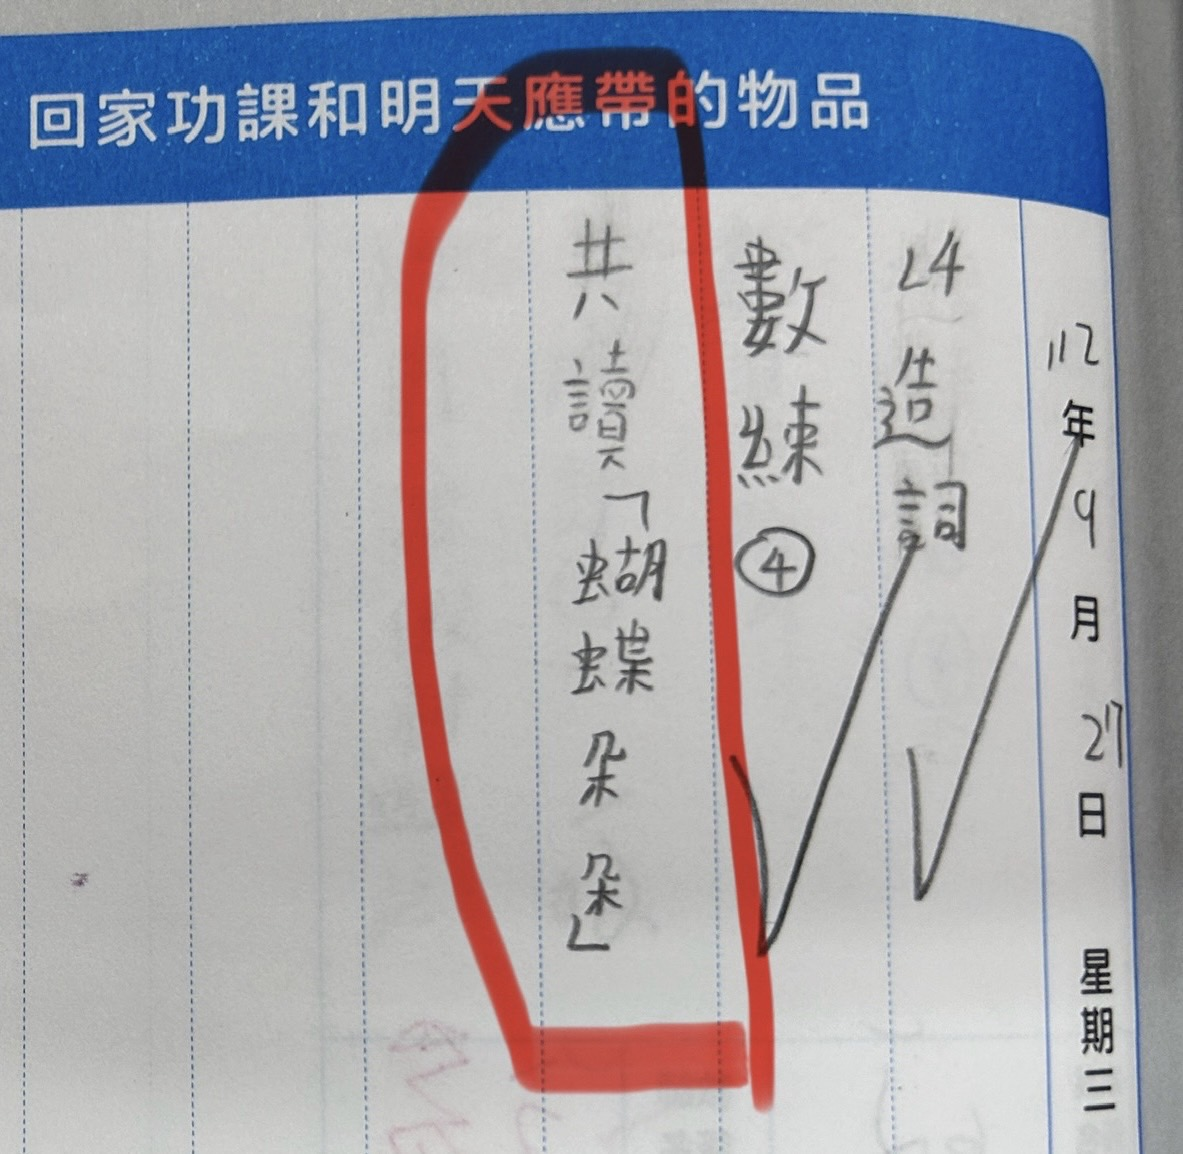 回家功課和明天應帶的物品
112年9月27日 星期三
L4造詞
數練④
共讀「蝴蝶朵朵」